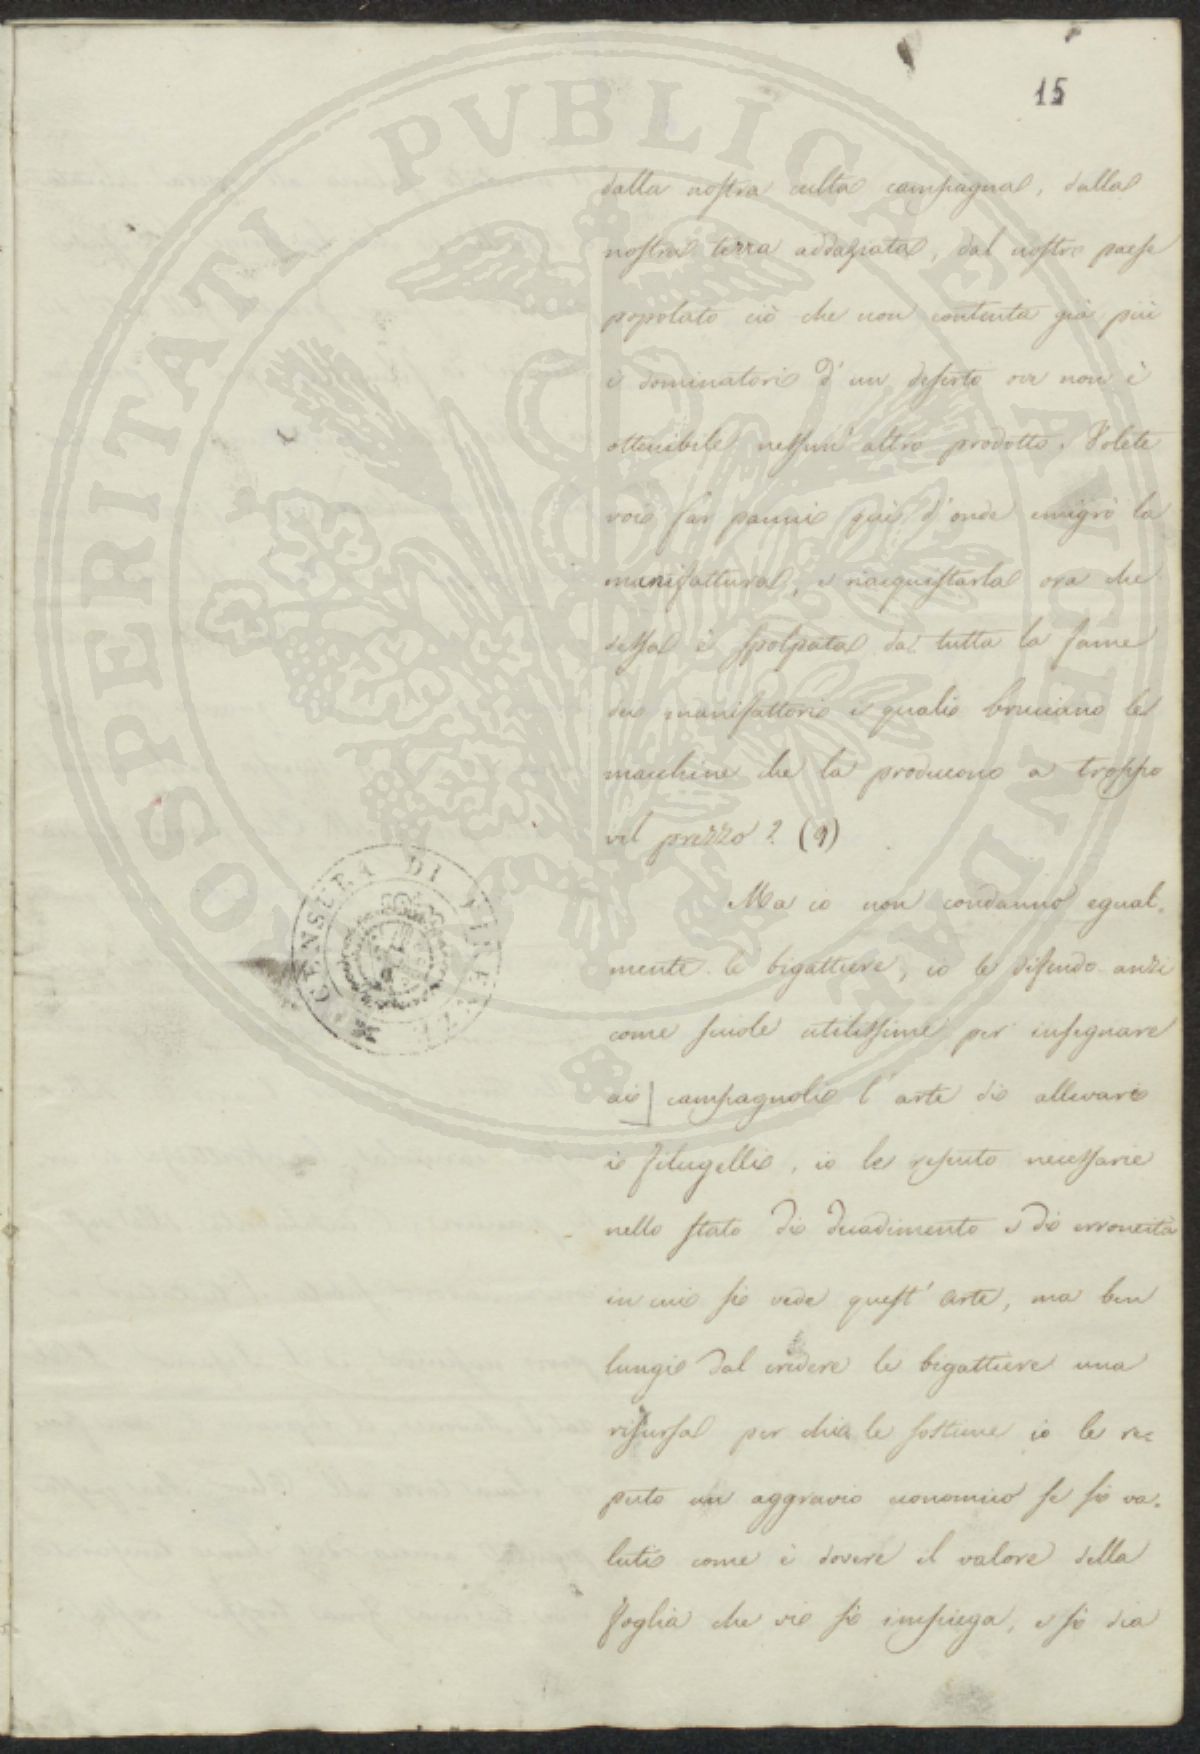 15
dalla nostra culta campagna, dalla
nostra terra addaziata, dal nostro paese
popolato ciò che non contenta già più
i dominatori d'un deserto ove non è
ottenibile nessun' altro prodotto. Volete
voi far panni quì d'onde emigrò la
manifattura, e riacquistarla ora che
dessa è spolpata da tutta la fame
dei manifattori i quali bruciano le
macchine che la producono a troppo
vil prezzo? (9)
Ma io non condanno egual-
mente le bigattiere, io le difendo anzi
come scuole utilissime per insegnare
ai] campagnoli l'arte di allevare
i filugelli, io le reputo necessarie
nello stato di decadimento e di erroneità
in cui si vede quest' arte, ma ben
lungi dal credere le bigattiere una
risorsa per chi le sostiene io le re-
puto un aggravio economico se si va-
luti come è dovere il valore della
foglia che vi si impiega, e si dia
CENSURA DI FIRENZE
PROSPERITATI PVBLICAE AVGENDAE